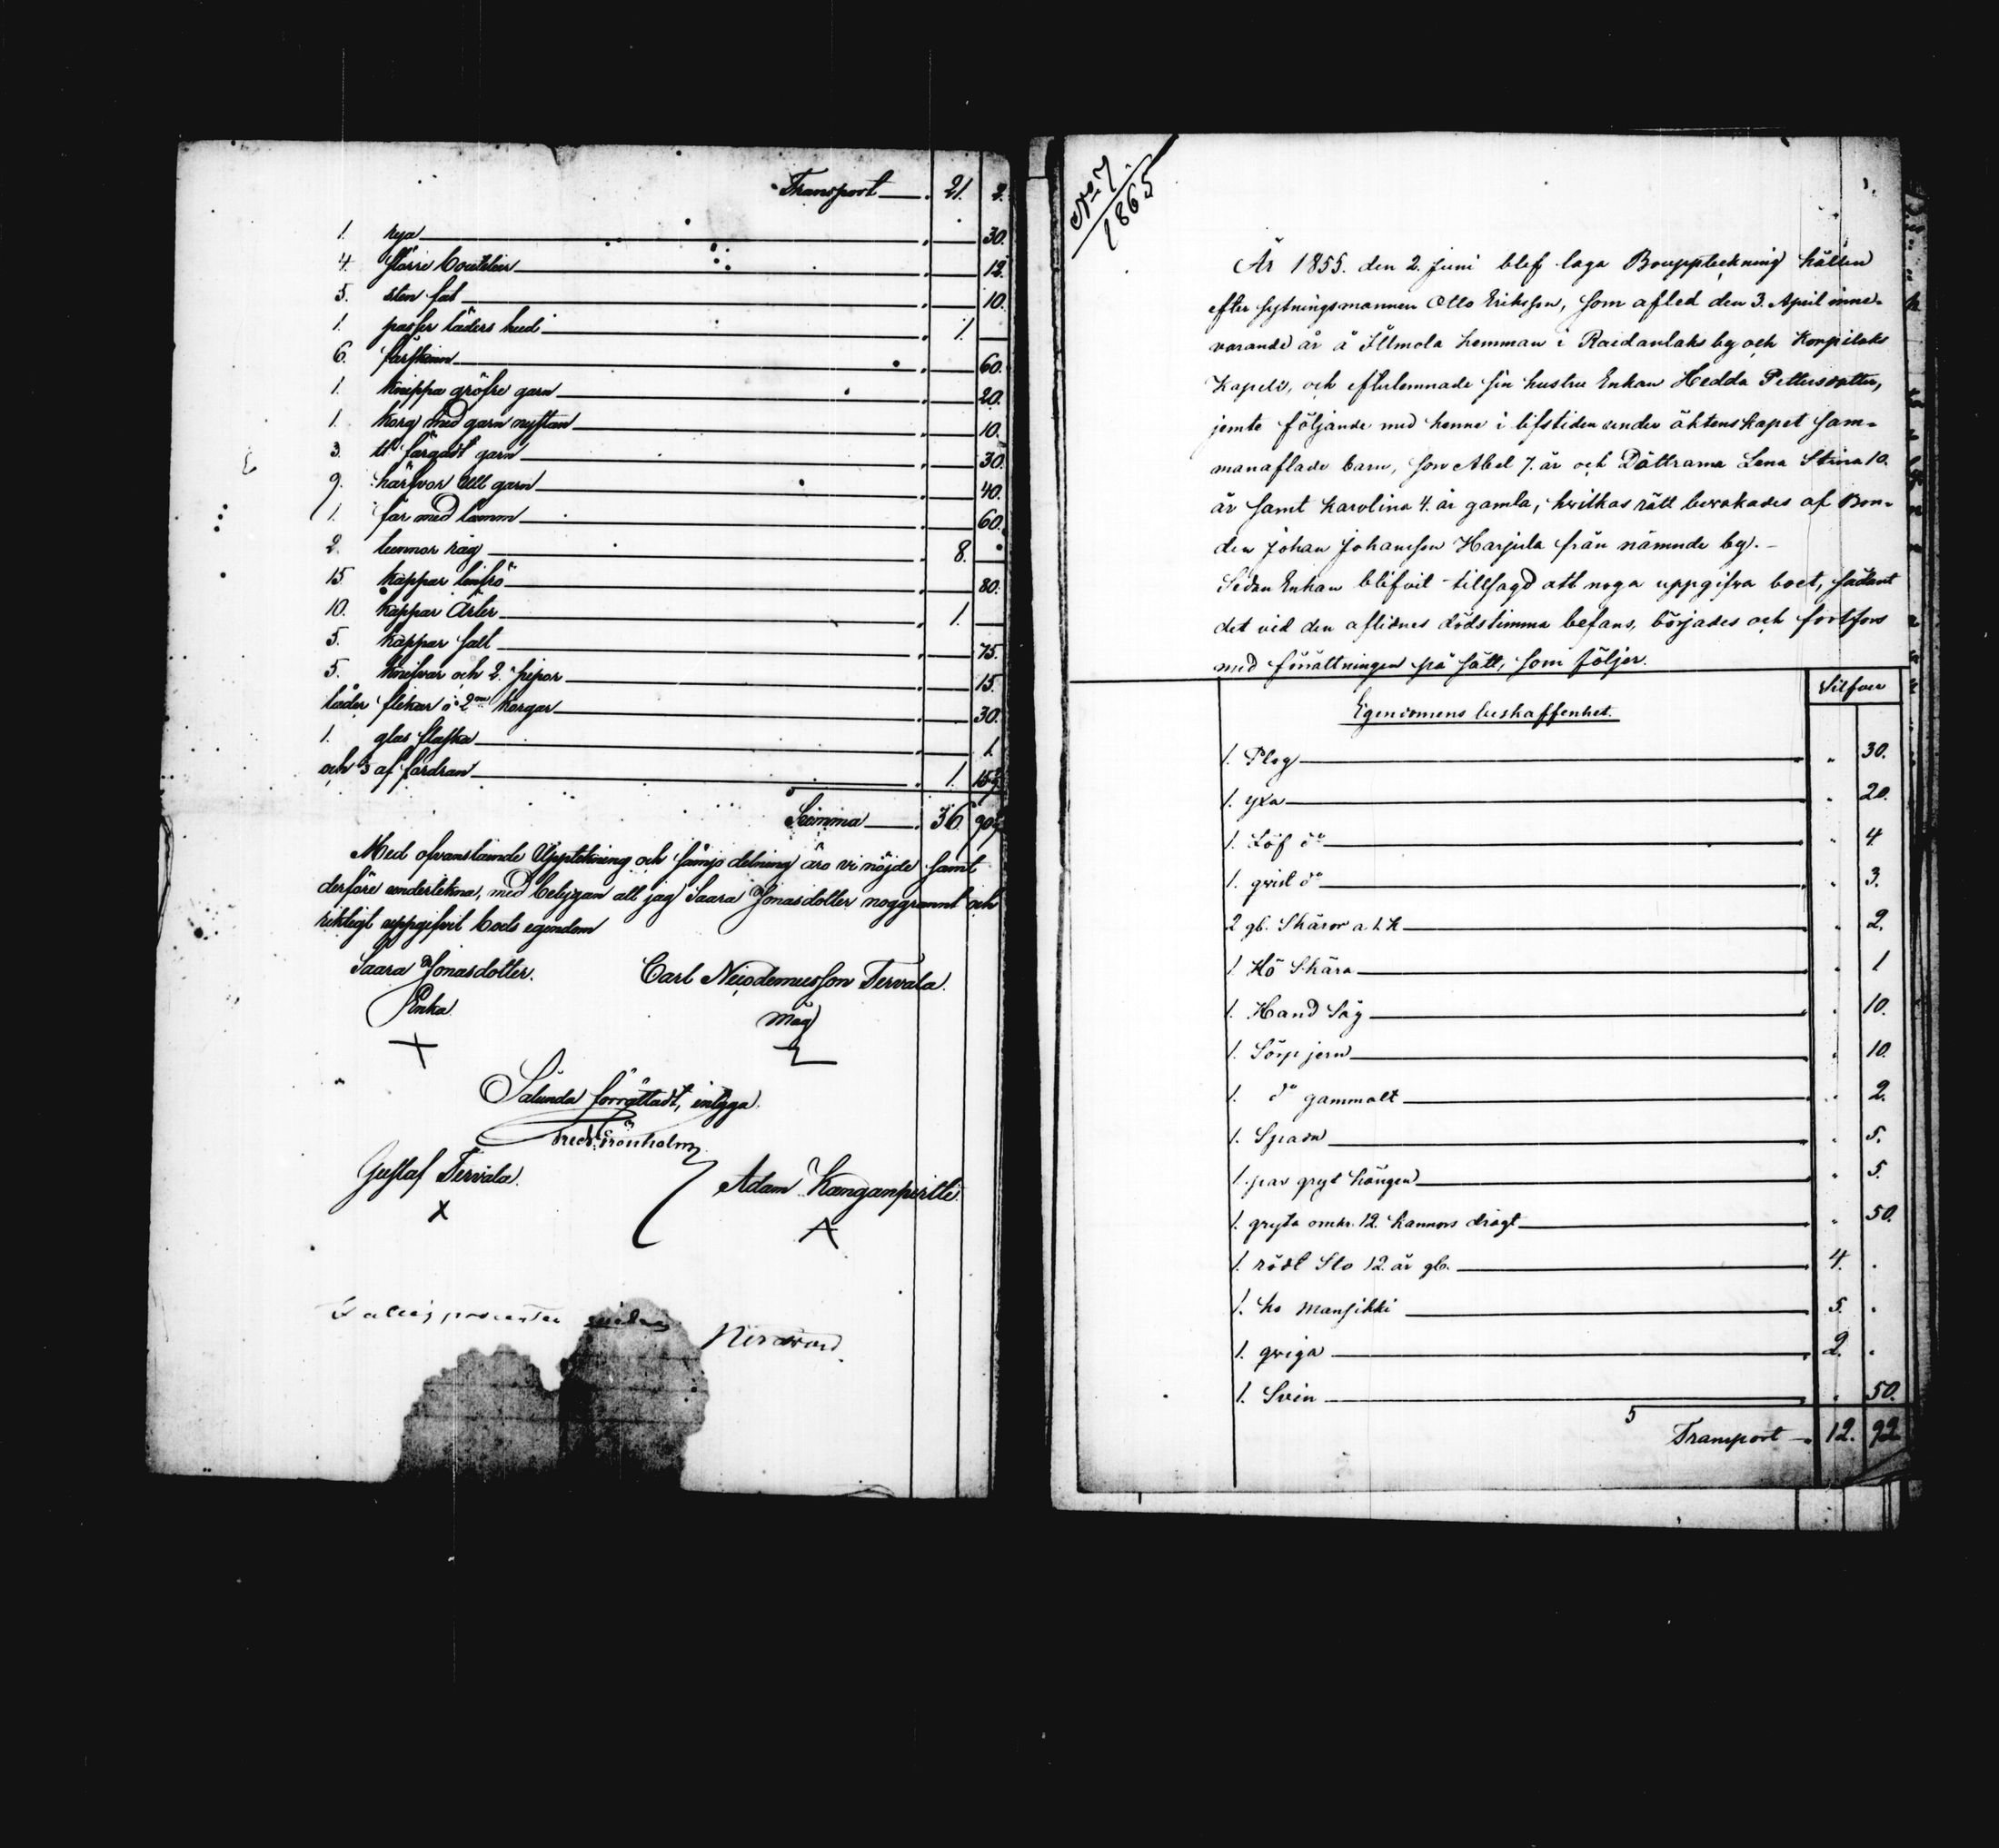 Transport 21. 2.
1. rya 30.
4. större bouteleir 12.
5. sten fat 10.
1. passer läders hud 1.
6. fårskinn 60.
1. knippa gröfre garn 20.
1. korg med garn nystan 10.
3. ℔ färgadt garn 30.
9. härfvor Ull garn 40.
1. får med lamm 60.
2. tunnor råg 8.
15 kappar linfrö 80.
10. kappar Ärter 1.
5. kappar salt 75.
5. knifvar och 2. pipor 15.
läder flekar i 2ne korgar 30.
1. glas flaska 1.
och 3 af fordran 1. 15
Summa 36. 90
Med ofvanstående Upptekning och sämjo delning äro vi nöjde samt
derföre undertekna, med betygan att jag Saara Jonasdotter noggrannt och
riktigt uppgifvit boets egendom
Saara Jonasdotter. Carl Nicodemusson Tervala.
Enka. Måg
Sålunda förrättadt, intyga.
Fredr. Grönholm
Gustaf Tervala. Adam Kanganpertti.
No 7
1865
År 1855. den 2. Juni blef laga Bouppteckning hållen
efter sytningsmannen Otto Eriksson, som afled den 3. April inne-
varande år å Illmola hemman i Raidanlaks by och Korpilaks
Kapell, och efterlemnade sin hustru Enkan Hedda Pettersdotter,
jemte följande med henne i lifstiden under äktenskapet sam-
manaflade barn, son Abel 7. år och Döttrarna Lena Stina 10.
år samt Karolina 4. år gamla, hvilkas rätt bevakades af Bon-
den Johan Johansson Harjula från nämnde by. -
Sedan Enkan blifvit tillsagd att noga uppgifva boet, sådant
det vid den aflidnes dödstimma befans, börjades och fortfors
med förrättningen på sätt, som följer.
Egendomens beskaffenhet. Silfver
1. Plog " 30.
1. yxa " 20.
1. Löf do " 4.
1. qvist do " 3.
2 gl. Skäror a 1. K " 2.
1. Hö Skära " 1
1. Hand Såg " 10.
1. Sörp jern " 10.
1. do gammalt " 2.
1. Spadn " 5.
1. par gryt hängen " 5.
1. gryta omkr. 12. kannors drägt " 50.
1. rödt Sto 12. år gl. 4. "
1. ko Mansikki 5. "
1. qviga 2. "
1. Svin " 50.
Transport 12. 92